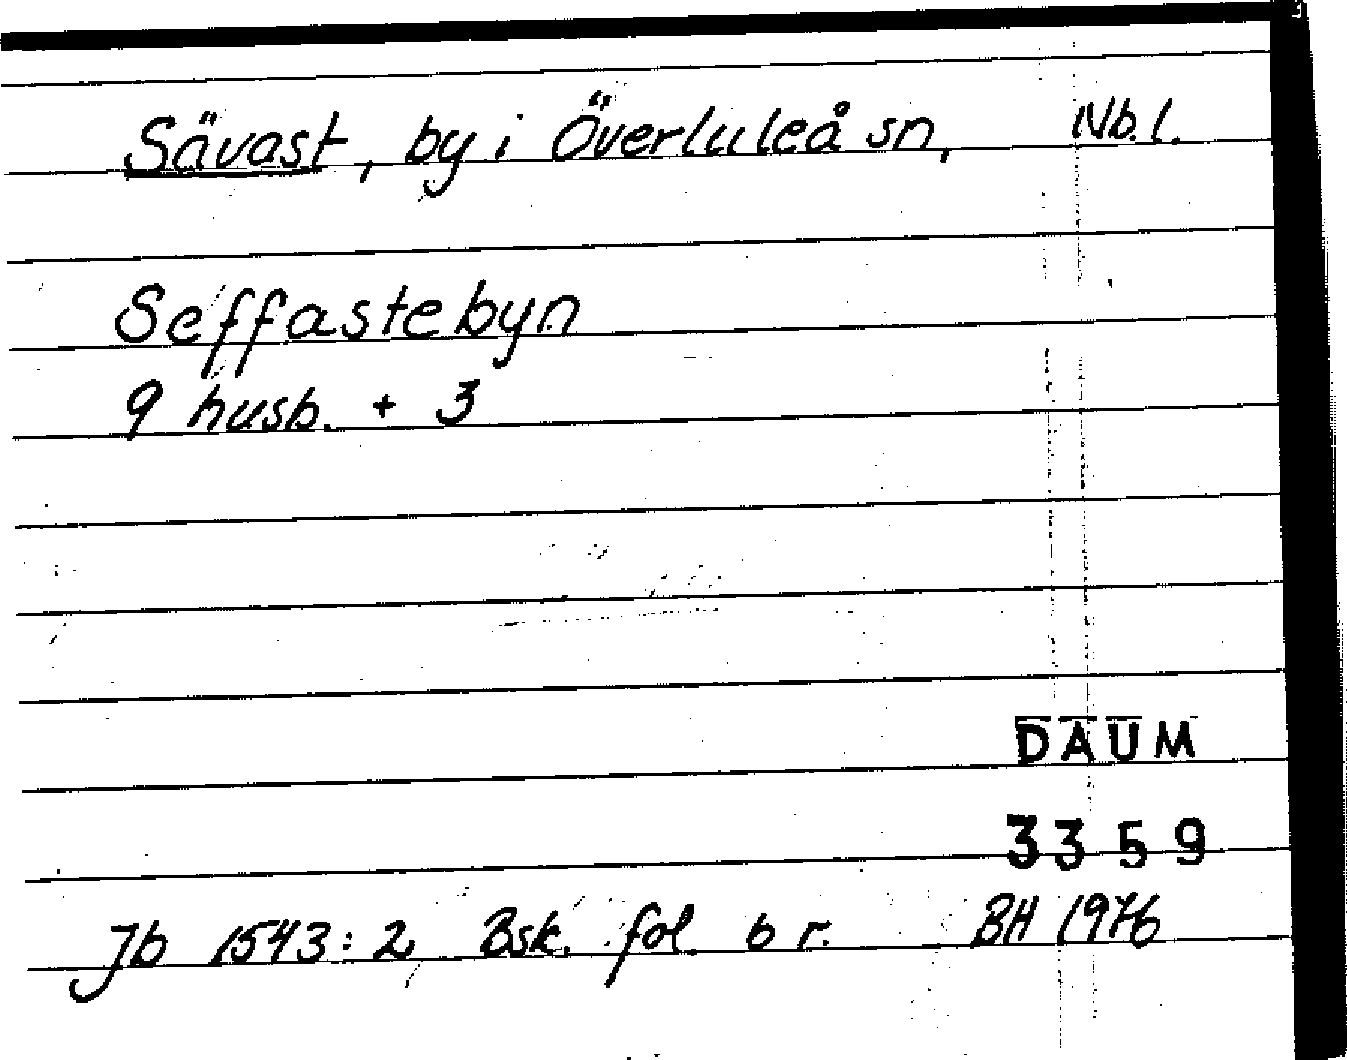 Sävast, by i Överluleå sn, Nb.l.
Seffastebyn
9 husb. + 3
DAUM
3359
Jb 1543:2, Bsk. fol. 6 r. BH 1976